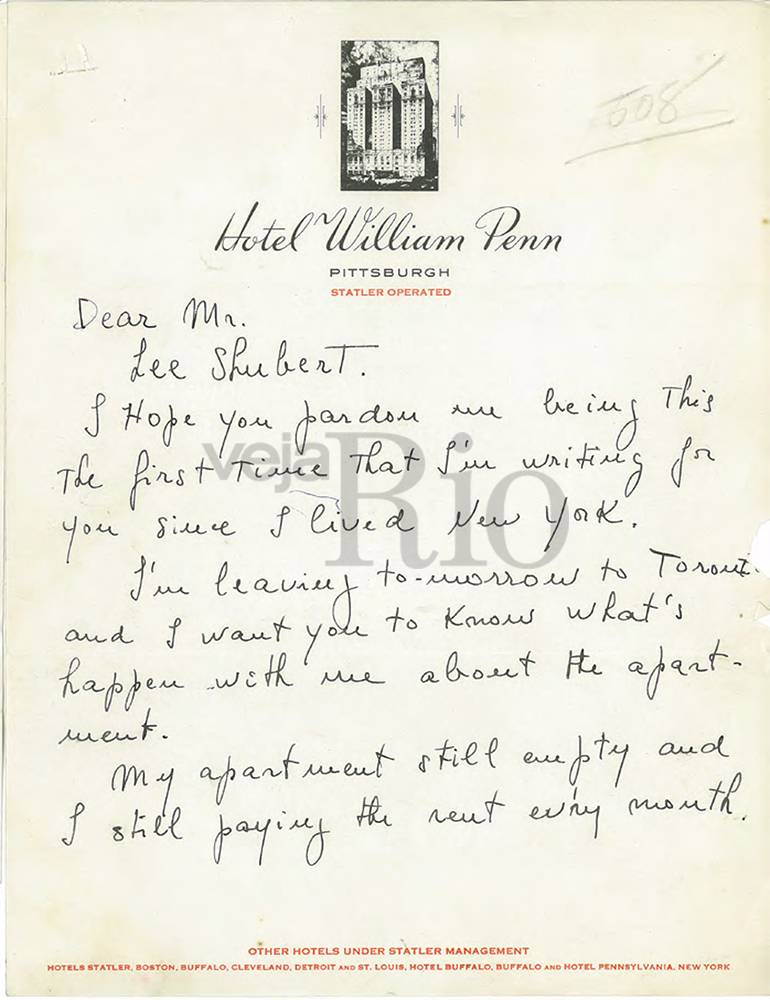 508
Hotel William Penn
PITTSBURGH
STATLER OPERATED
Dear Mr.
Lee Shubert.
I Hope you pardon me being This
The first Time That I'm writing for
you since I lived New York.
I'm leaving to-morrow to Toront
and I want you to Know what's
happen with me about the apart-
ment.
My apartment still empty and
I still paying the rent ev'ry month.
veja
Rio
OTHER HOTELS UNDER STATLER MANAGEMENT
HOTELS STATLER, BOSTON, BUFFALO, CLEVELAND, DETROIT AND ST. LOUIS, HOTEL BUFFALO, BUFFALO AND HOTEL PENNSYLVANIA, NEW YORK